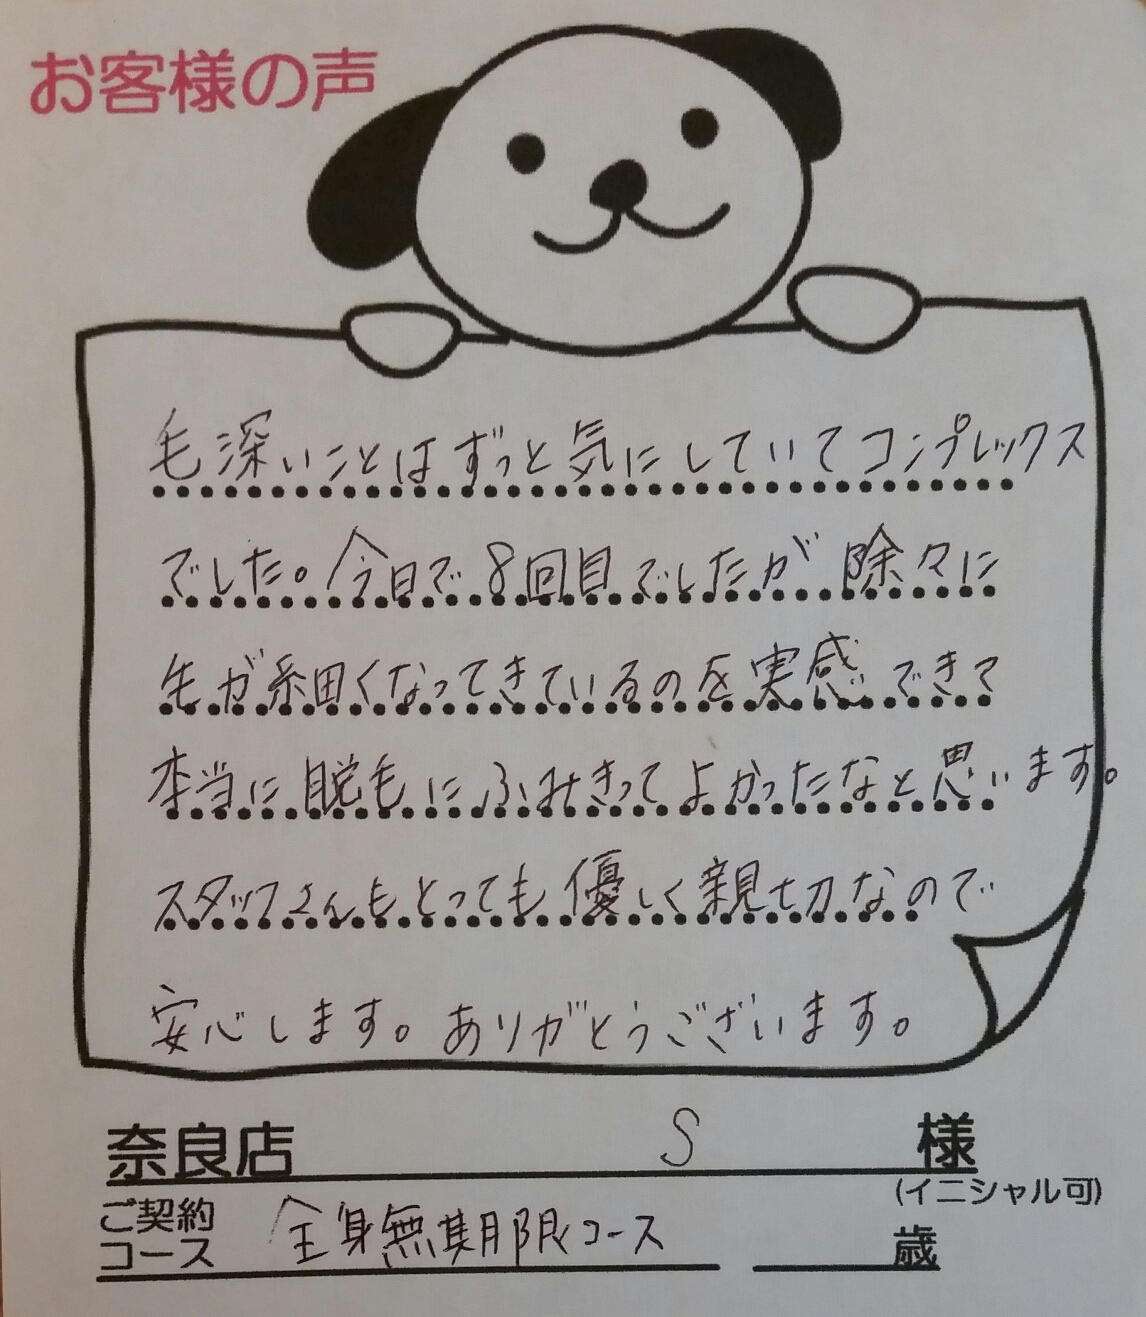 お客様の声
毛深いことはずっと気にしていてコンプレックス
でした。今日で8回目でしたが除々に
毛が細くなってきているのを実感できて
本当に脱毛にふみきってよかったなと思います。
スタッフさんもとっても優しく親切なので
安心します。ありがとうございます。
奈良店 S 様
(イニシャル可)
ご契約
コース 全身無期限コース 歳